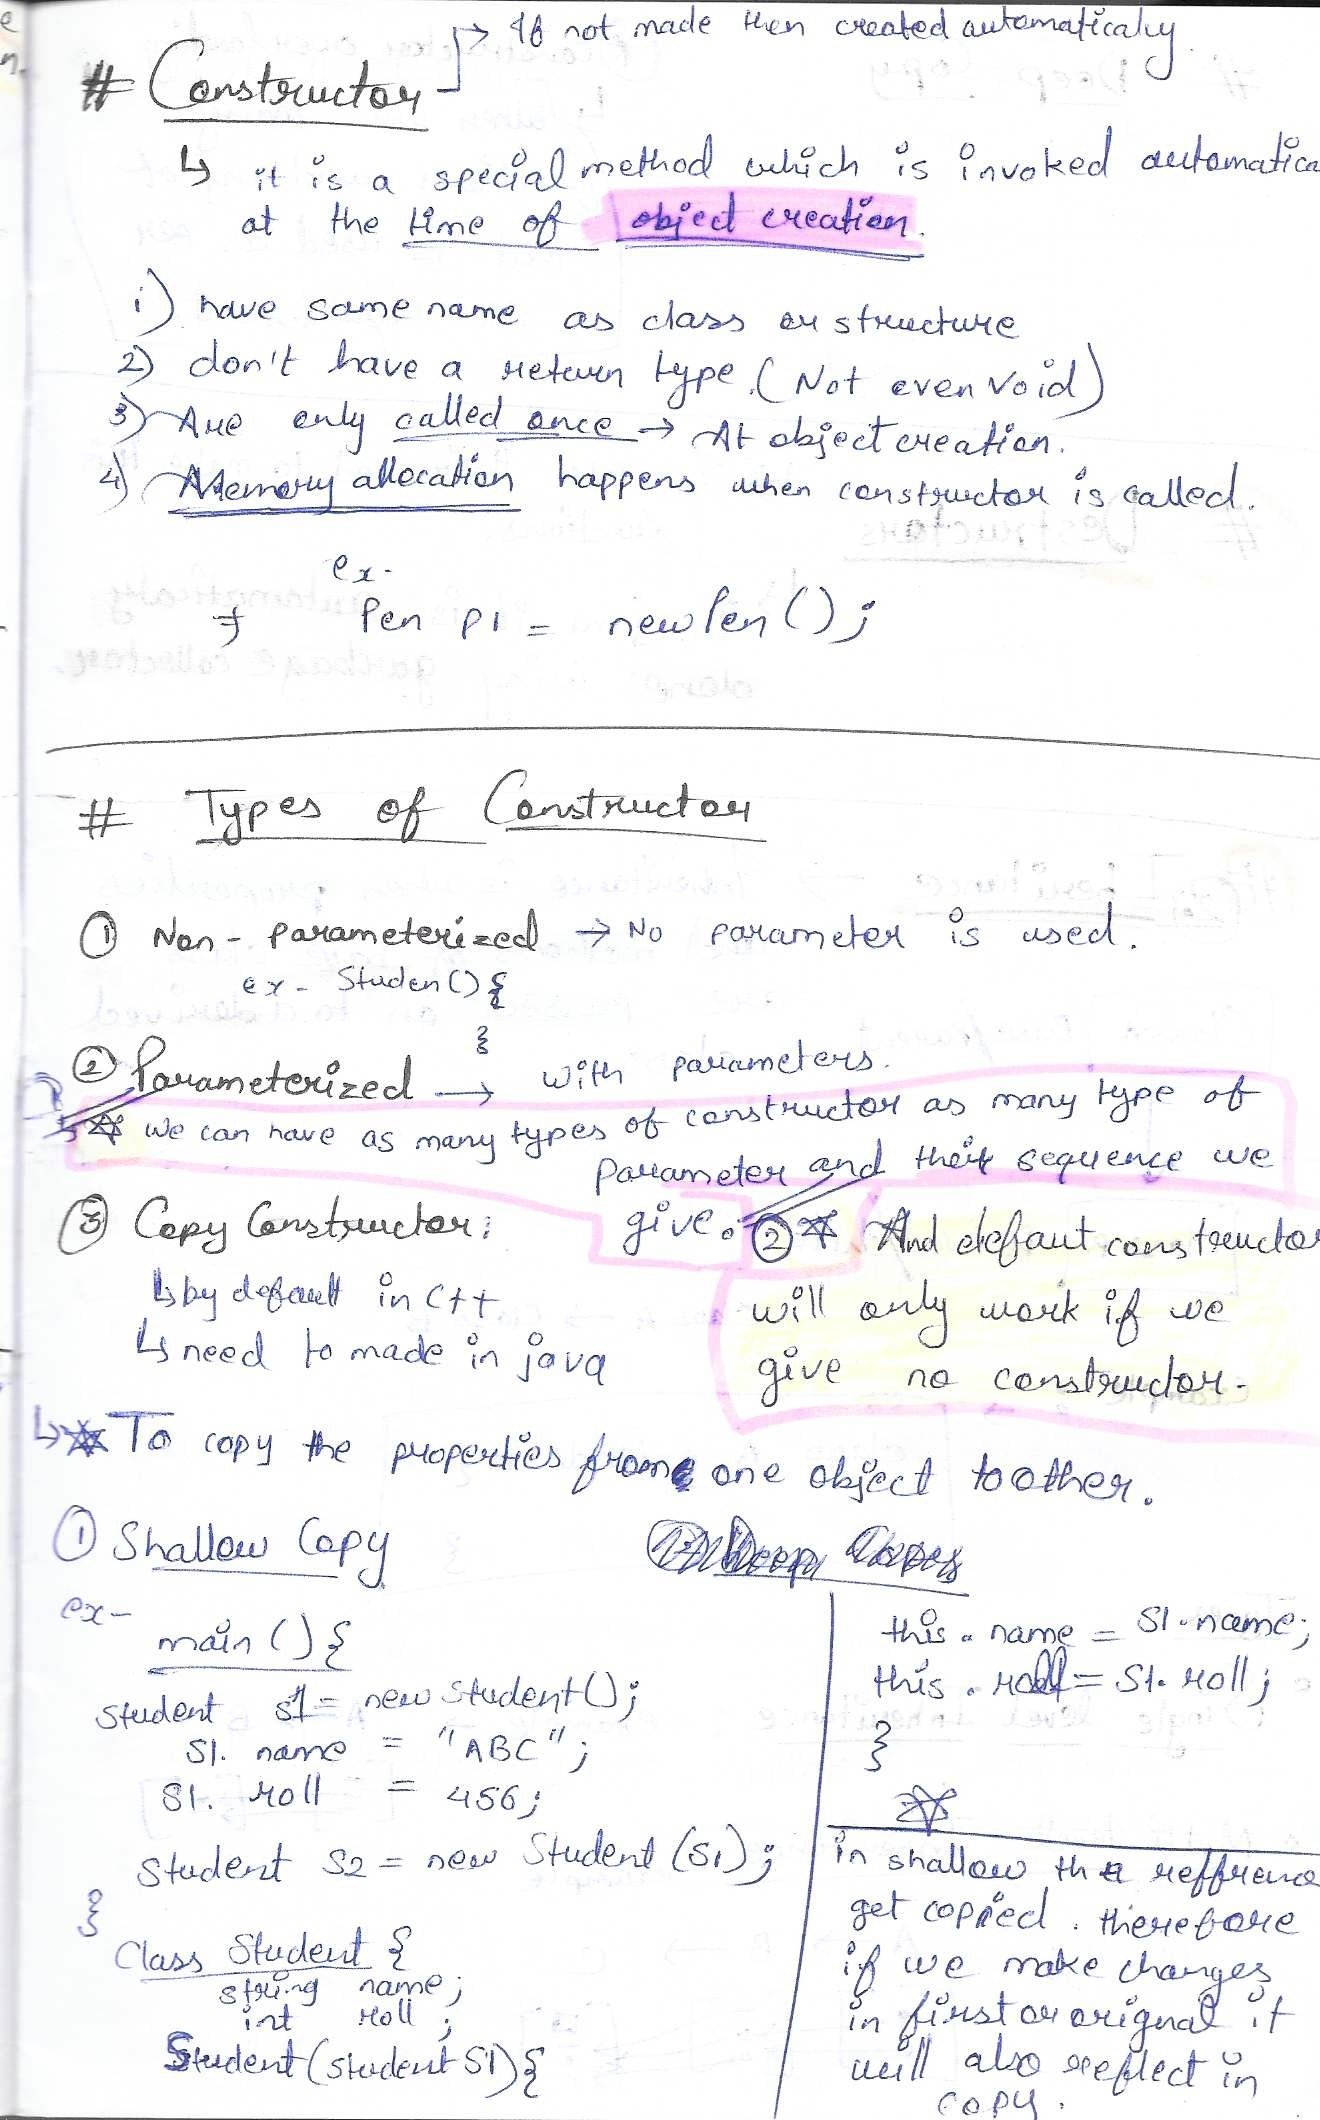 → If not made then created automatically.
# Constructor
↳ it is a special method which is invoked automatica
at the time of object creation.
1) have same name as class or structure
2) don't have a return type. (Not even void)
3) Are only called once → At object creation.
4) Memory allocation happens when constructor is called.
ex-
Pen p1 = new Pen();
# Types of Constructor
① Non-parameterized → No parameter is used.
ex- Studen(){
}
② Parameterized → with parameters.
☆ we can have as many types of constructor as many type of
parameter and their sequence we
give.
③ Copy Constructor:
↳ by default in C++
↳ need to made in java
② ☆ And defaut constructor
will only work if we
give no constructor.
↳ ☆ To copy the properties from one object to other.
① Shallow Copy
ex-
main(){
Student s1 = new Student();
S1. name = "ABC";
S1. roll = 456;
Student S2 = new Student(S1);
}
Class Student {
string name;
int roll;
Student(student S1){
this. name = S1.name;
this. roll = S1. roll;
}
☆
in shallow the reffrence
get copied. therefore
if we make changes
in first or orignal it
will also reflect in
copy.